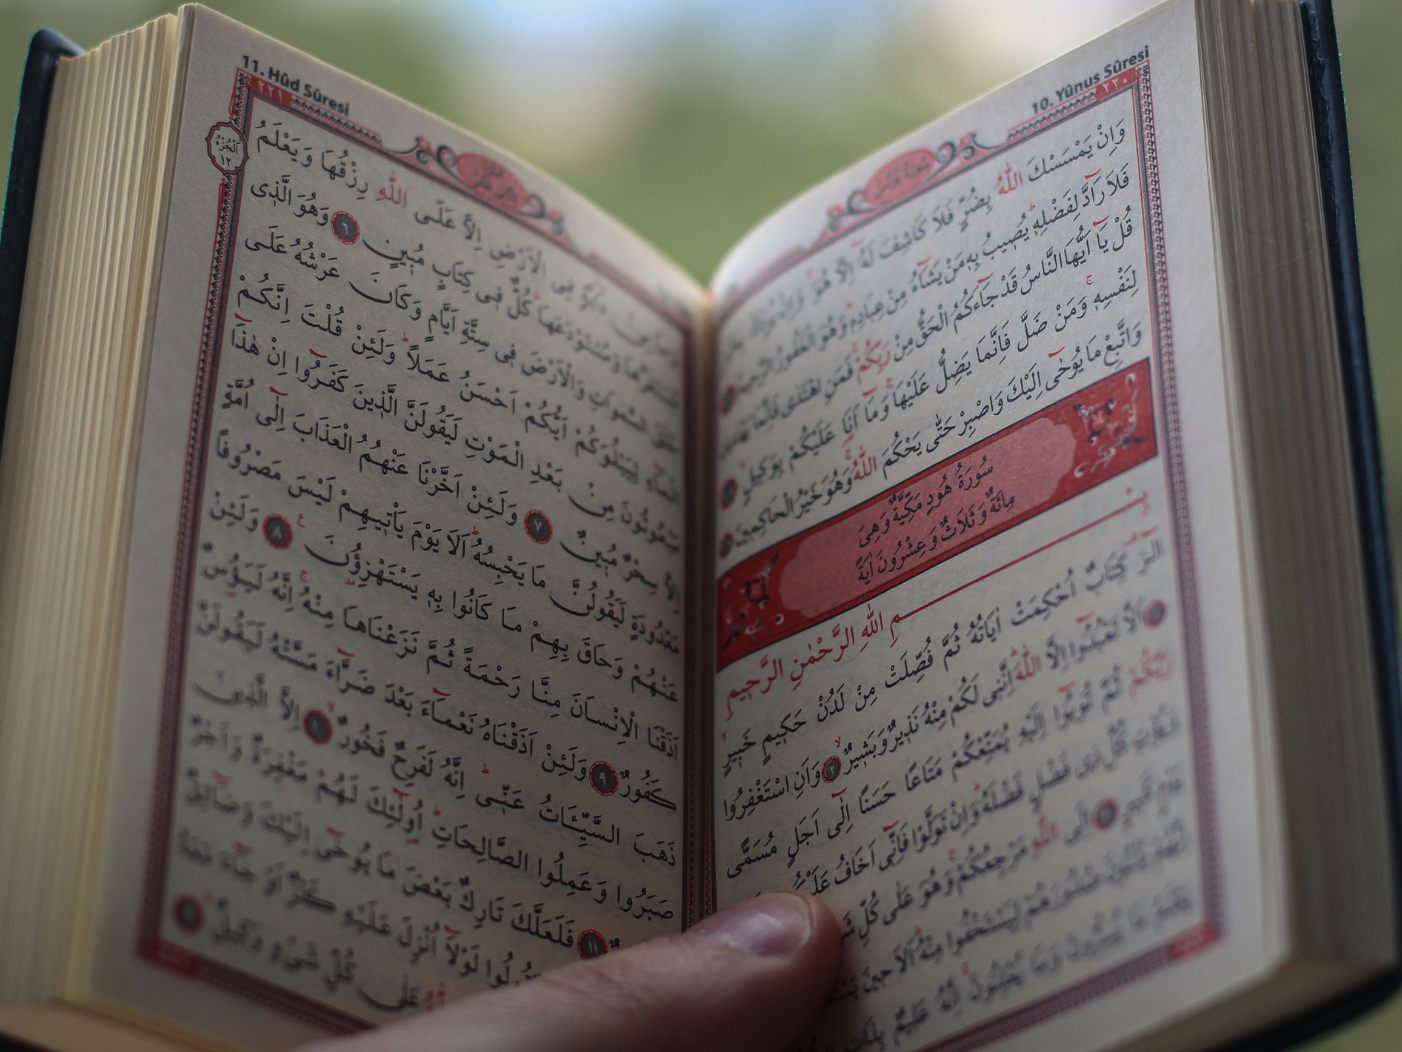 10. Yûnus Sûresi
٢٢٠
وَاِنْ يَمْسَسْكَ اللّٰهُ بِضُرٍّ فَلَا كَاشِفَ لَهُٓ اِلَّا هُوَۚ وَاِنْ
فَلَا رَٓادَّ لِفَضْلِه۪ۜ يُص۪يبُ بِه۪ مَنْ يَشَٓاءُ مِنْ عِبَادِه۪ۜ وَهُوَ الْغَفُورُ الرَّح۪يمُ
قُلْ يَٓا اَيُّهَا النَّاسُ قَدْ جَٓاءَكُمُ الْحَقُّ مِنْ رَبِّكُمْۚ فَمَنِ اهْتَدٰى فَاِنَّمَا يَهْتَد۪ي
لِنَفْسِه۪ۚ وَمَنْ ضَلَّ فَاِنَّمَا يَضِلُّ عَلَيْهَاۚ وَمَٓا اَنَا۬ عَلَيْكُمْ بِوَك۪يلٍ
وَاتَّبِعْ مَا يُوحٰٓى اِلَيْكَ وَاصْبِرْ حَتّٰى يَحْكُمَ اللّٰهُۚ وَهُوَ خَيْرُ الْحَاكِم۪ينَ
سُورَةُ هُودٍ مَكِّيَّةٌ وَهِيَ
مِائَةٌ وَثَلَاثٌ وَعِشْرُونَ اٰيَةً
بِسْمِ اللّٰهِ الرَّحْمٰنِ الرَّح۪يمِ
الٓرٰ۠ كِتَابٌ اُحْكِمَتْ اٰيَاتُهُ ثُمَّ فُصِّلَتْ مِنْ لَدُنْ حَك۪يمٍ خَب۪يرٍۙ
١ اَلَّا تَعْبُدُٓوا اِلَّا اللّٰهَۜ اِنَّن۪ي لَكُمْ مِنْهُ نَذ۪يرٌ وَبَش۪يرٌۙ ٢ وَاَنِ اسْتَغْفِرُوا
رَبَّكُمْ ثُمَّ تُوبُٓوا اِلَيْهِ يُمَتِّعْكُمْ مَتَاعًا حَسَنًا اِلٰٓى اَجَلٍ مُسَمًّى
وَيُؤْتِ كُلَّ ذ۪ي فَضْلٍ فَضْلَهُۜ وَاِنْ تَوَلَّوْا فَاِنّ۪ٓي اَخَافُ
يَوْمٍ كَب۪يرٍ ٣ اِلَى اللّٰهِ مَرْجِعُكُمْۚ وَهُوَ عَلٰى كُلِّ
اِنَّهُمْ يَثْنُونَ صُدُورَهُمْ لِيَسْتَخْفُوا مِنْهُۜ اَلَا ح۪ينَ
يَعْلَمُ مَا يُسِرُّونَ وَمَا يُعْلِنُونَۚ اِنَّهُ عَل۪يمٌ بِذَاتِ
11. Hûd Sûresi
٢٢١
اَلْجُزْءُ
١٢
الْاَرْضِ اِلَّا عَلَى اللّٰهِ رِزْقُهَا وَيَعْلَمُ
مُسْتَقَرَّهَا وَمُسْتَوْدَعَهَاۜ كُلٌّ ف۪ي كِتَابٍ مُب۪ينٍ ٦ وَهُوَ الَّذ۪ي
خَلَقَ السَّمٰوَاتِ وَالْاَرْضَ ف۪ي سِتَّةِ اَيَّامٍ وَكَانَ عَرْشُهُ عَلَى
الْمَٓاءِ لِيَبْلُوَكُمْ اَيُّكُمْ اَحْسَنُ عَمَلًاۜ وَلَئِنْ قُلْتَ اِنَّكُمْ
مَبْعُوثُونَ مِنْ بَعْدِ الْمَوْتِ لَيَقُولَنَّ الَّذ۪ينَ كَفَرُٓوا اِنْ هٰذَٓا
اِلَّا سِحْرٌ مُب۪ينٌ ٧ وَلَئِنْ اَخَّرْنَا عَنْهُمُ الْعَذَابَ اِلٰٓى اُمَّةٍ
مَعْدُودَةٍ لَيَقُولُنَّ مَا يَحْبِسُهُۜ اَلَا يَوْمَ يَأْت۪يهِمْ لَيْسَ مَصْرُوفًا
عَنْهُمْ وَحَاقَ بِهِمْ مَا كَانُوا بِه۪ يَسْتَهْزِؤُ۫نَ۟ ٨ وَلَئِنْ
اَذَقْنَا الْاِنْسَانَ مِنَّا رَحْمَةً ثُمَّ نَزَعْنَاهَا مِنْهُۚ اِنَّهُ لَيَؤُ۫سٌ
كَفُورٌ ٩ وَلَئِنْ اَذَقْنَاهُ نَعْمَٓاءَ بَعْدَ ضَرَّٓاءَ مَسَّتْهُ لَيَقُولَنَّ
ذَهَبَ السَّيِّـَٔاتُ عَنّ۪يۜ اِنَّهُ لَفَرِحٌ فَخُورٌۙ ١٠ اِلَّا الَّذ۪ينَ
صَبَرُوا وَعَمِلُوا الصَّالِحَاتِۜ اُو۬لٰٓئِكَ لَهُمْ مَغْفِرَةٌ وَاَجْرٌ
١١ فَلَعَلَّكَ تَارِكٌ بَعْضَ مَا يُوحٰٓى اِلَيْكَ وَضَٓائِقٌ
لَوْلَٓا اُنْزِلَ عَلَيْهِ كَنْزٌ اَوْ جَٓاءَ مَعَهُ
عَلٰى كُلِّ شَيْءٍ وَك۪يلٌۜ ١٢